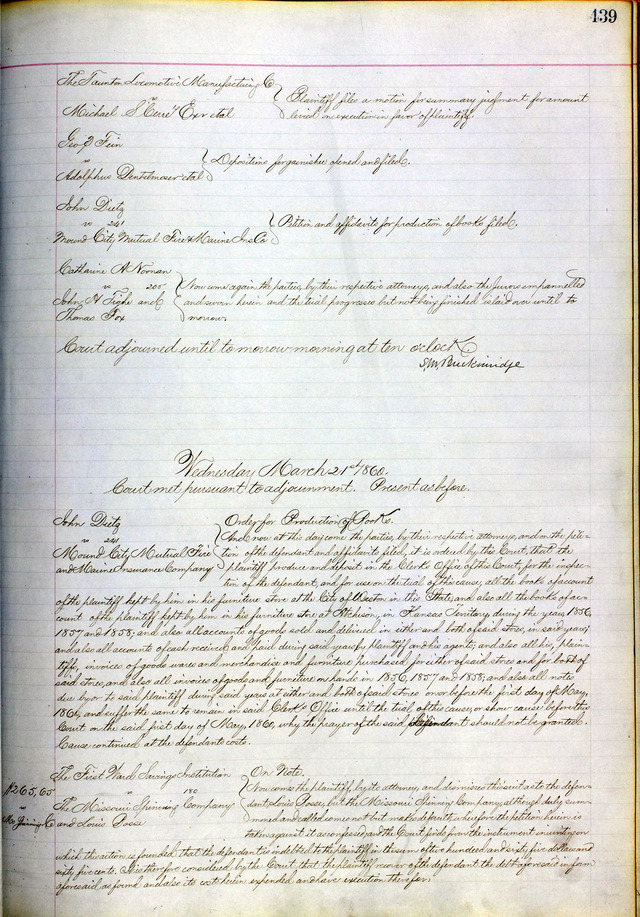 439
The Taunton Locomotive Manufacturing C
vs
Michael S Exr et al
Plaintiff files a motion for summary judgment for amount
levied on execution in favor of plaintiff.
Geo
vs
Adolphus et al
Depositions for garnishee opened and filed.
John Dietz
vs 241
Mound City Mutual Fire & Marine Ins Co
Petition and affidavits for production of books filed.
Catharine A Nornan
vs 205
John H Tighe and
Thomas Fox
Now come again the parties, by their respective attorneys, and also the jurors empannelled
and sworn herein and the trial progresses but not being finished is laid over until to
morrow.
Court adjourned until tomorrow morning at ten o'clock
S.M. Breckinridge
Wednesday March 21st 1860.
Court met pursuant to adjournment. Present as before.
John Dietz
vs 241
Mound City Mutual Fire
and Marine Insurance Company
Order for Production of Books.
And now at this day come the parties, by their respective attorneys, and on the peti-
tion of the defendant and affidavit filed, it is ordered by the Court, that the
plaintiff produce and deposit in the Clerks Office of this Court, for the inspec-
tion of the defendant, and for use on the trial of this cause, all the books of account
of the plaintiff kept by him in his furniture store at the City of Weston in this State, and also all the books of ac-
count of the plaintiff kept by him in his furniture store at Atchison, in Kansas Territory during the years 1856,
1857 and 1858; and also all accounts of goods sold and delivered in either and both of said stores, in said years,
and also all accounts of cash received and paid during said years by plaintiff and his agents; and also all his, plain-
tiffs, invoices of goods wares and merchandise and furniture purchased for either of said stores and for both of
said stores, and also all invoices of goods and furniture on hand in 1856, 1857 and 1858; and also all notes
due by or to said plaintiff during said years at either and both of said stores on or before the first day of May,
1860, and suffer the same to remain in said Clerk's Office until the trial of this cause, or show cause before this
Court on the said first day of May, 1860, why the prayer of the said defendant should not be granted.
Cause continued at the defendants costs.
The First Ward Savings Institution
vs 180
The Missouri Spinning Company
and Louis Posse
$265,65
vs
Mo Spinning Co
On Note.
Now comes the plaintiff, by its attorney, and dismisses this suit as to the defen-
dant Louis Posse, but the Missouri Spinning Company, although duly sum-
moned and called comes not but makes default, wherefore the petition herein is
taken against it as confessed, and the Court finds from the instrument in writing on
which this action is founded that the defendant is indebted to the plaintiff in the sum of two hundred and sixty five dollars and
sixty five cents. It is therefore considered by the Court that the plaintiff recover of the defendant the debt aforesaid in form
aforesaid as found and also its costs herein expended and have execution therefor.